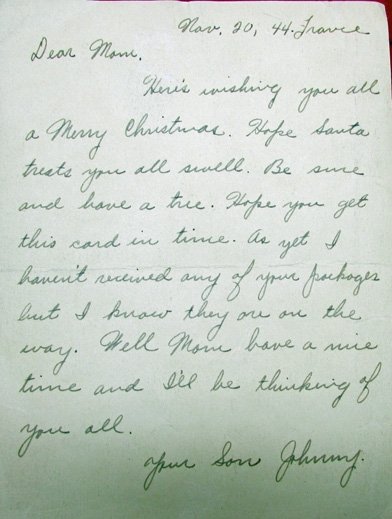 Nov. 20, 44. France
Dear Mom.
Here's wishing you all
a Merry Christmas. Hope Santa
treats you all swell. Be sure
and have a tree. Hope you get
this card in time. As yet I
haven't received any of your packages
but I know they are on the
way. Well Mom have a nice
time and I'll be thinking of
you all.
Your Son Johnny.